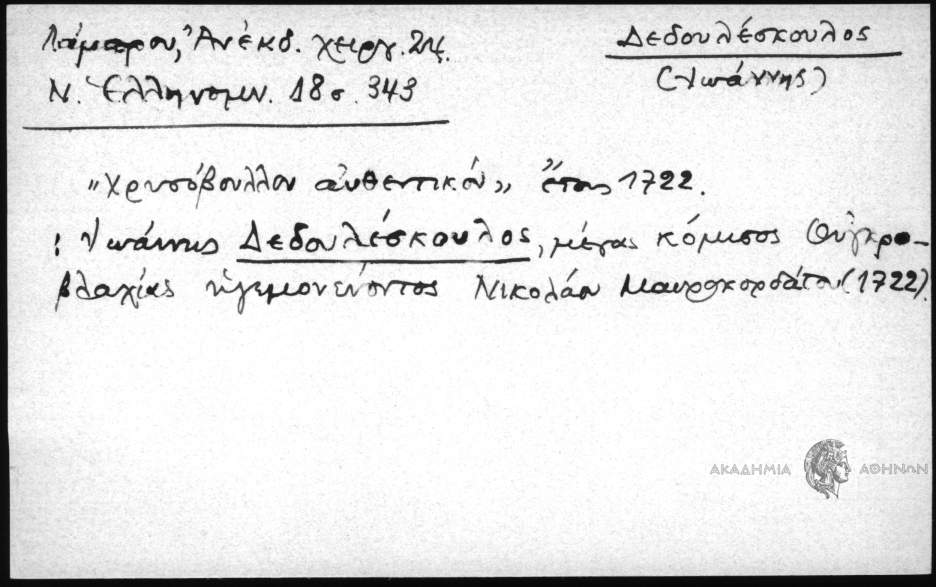 Λάμπρου, Ἀνέκδ. χειργ. 24.
Ν. Ἑλληνομν. 18 σ. 343
Δεδουλέσκουλος
(Ἰωάννης)
„Χρυσόβουλλον αὐθεντικόν„ ἔτους 1722.
: Ἰωάννης Δεδουλέσκουλος, μέγας κόμισος Οὐγκρο-
βλαχίας ἡγεμονεύοντος Νικολάου Μαυροκορδάτου (1722).
ΑΚΑΔΗΜΙΑ ΑΘΗΝΩΝ